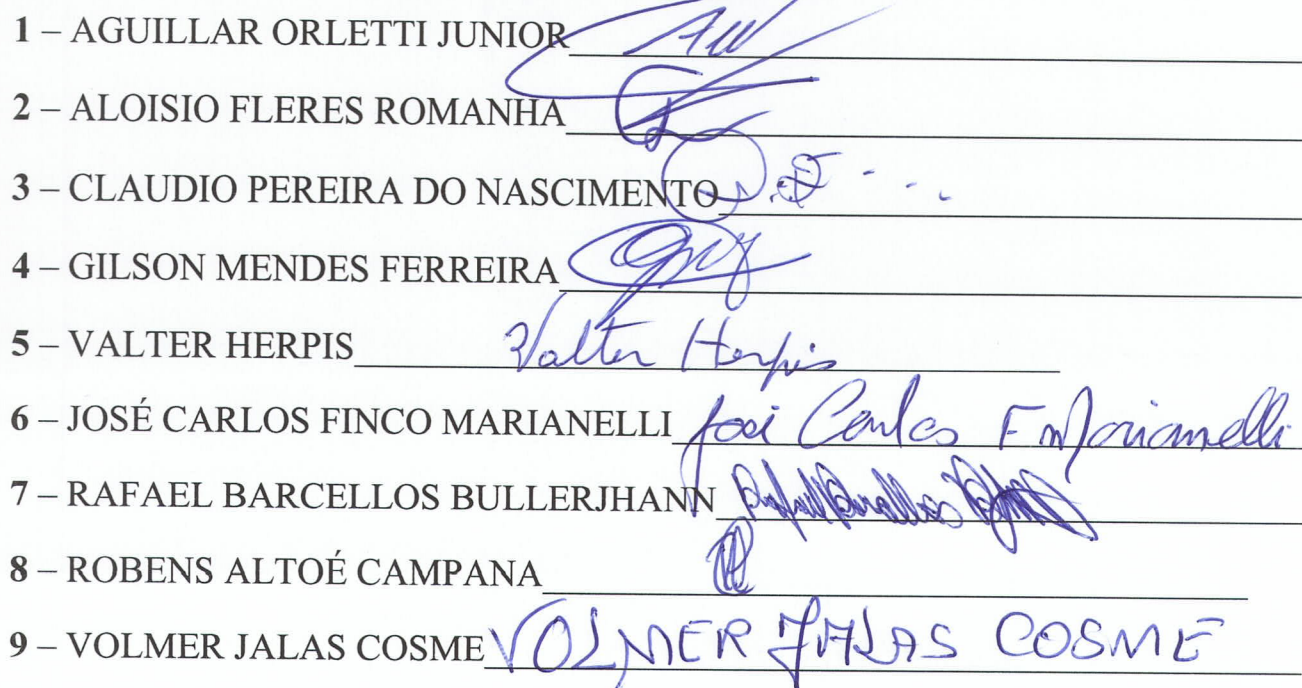 1 – AGUILLAR ORLETTI JUNIOR
2 – ALOISIO FLERES ROMANHA
3 – CLAUDIO PEREIRA DO NASCIMENTO
4 – GILSON MENDES FERREIRA
5 – VALTER HERPIS Valter Herpis
6 – JOSÉ CARLOS FINCO MARIANELLI José Carlos F Marianelli
7 – RAFAEL BARCELLOS BULLERJHANN
8 – ROBENS ALTOÉ CAMPANA
9 – VOLMER JALAS COSME VOLMER JALAS COSME